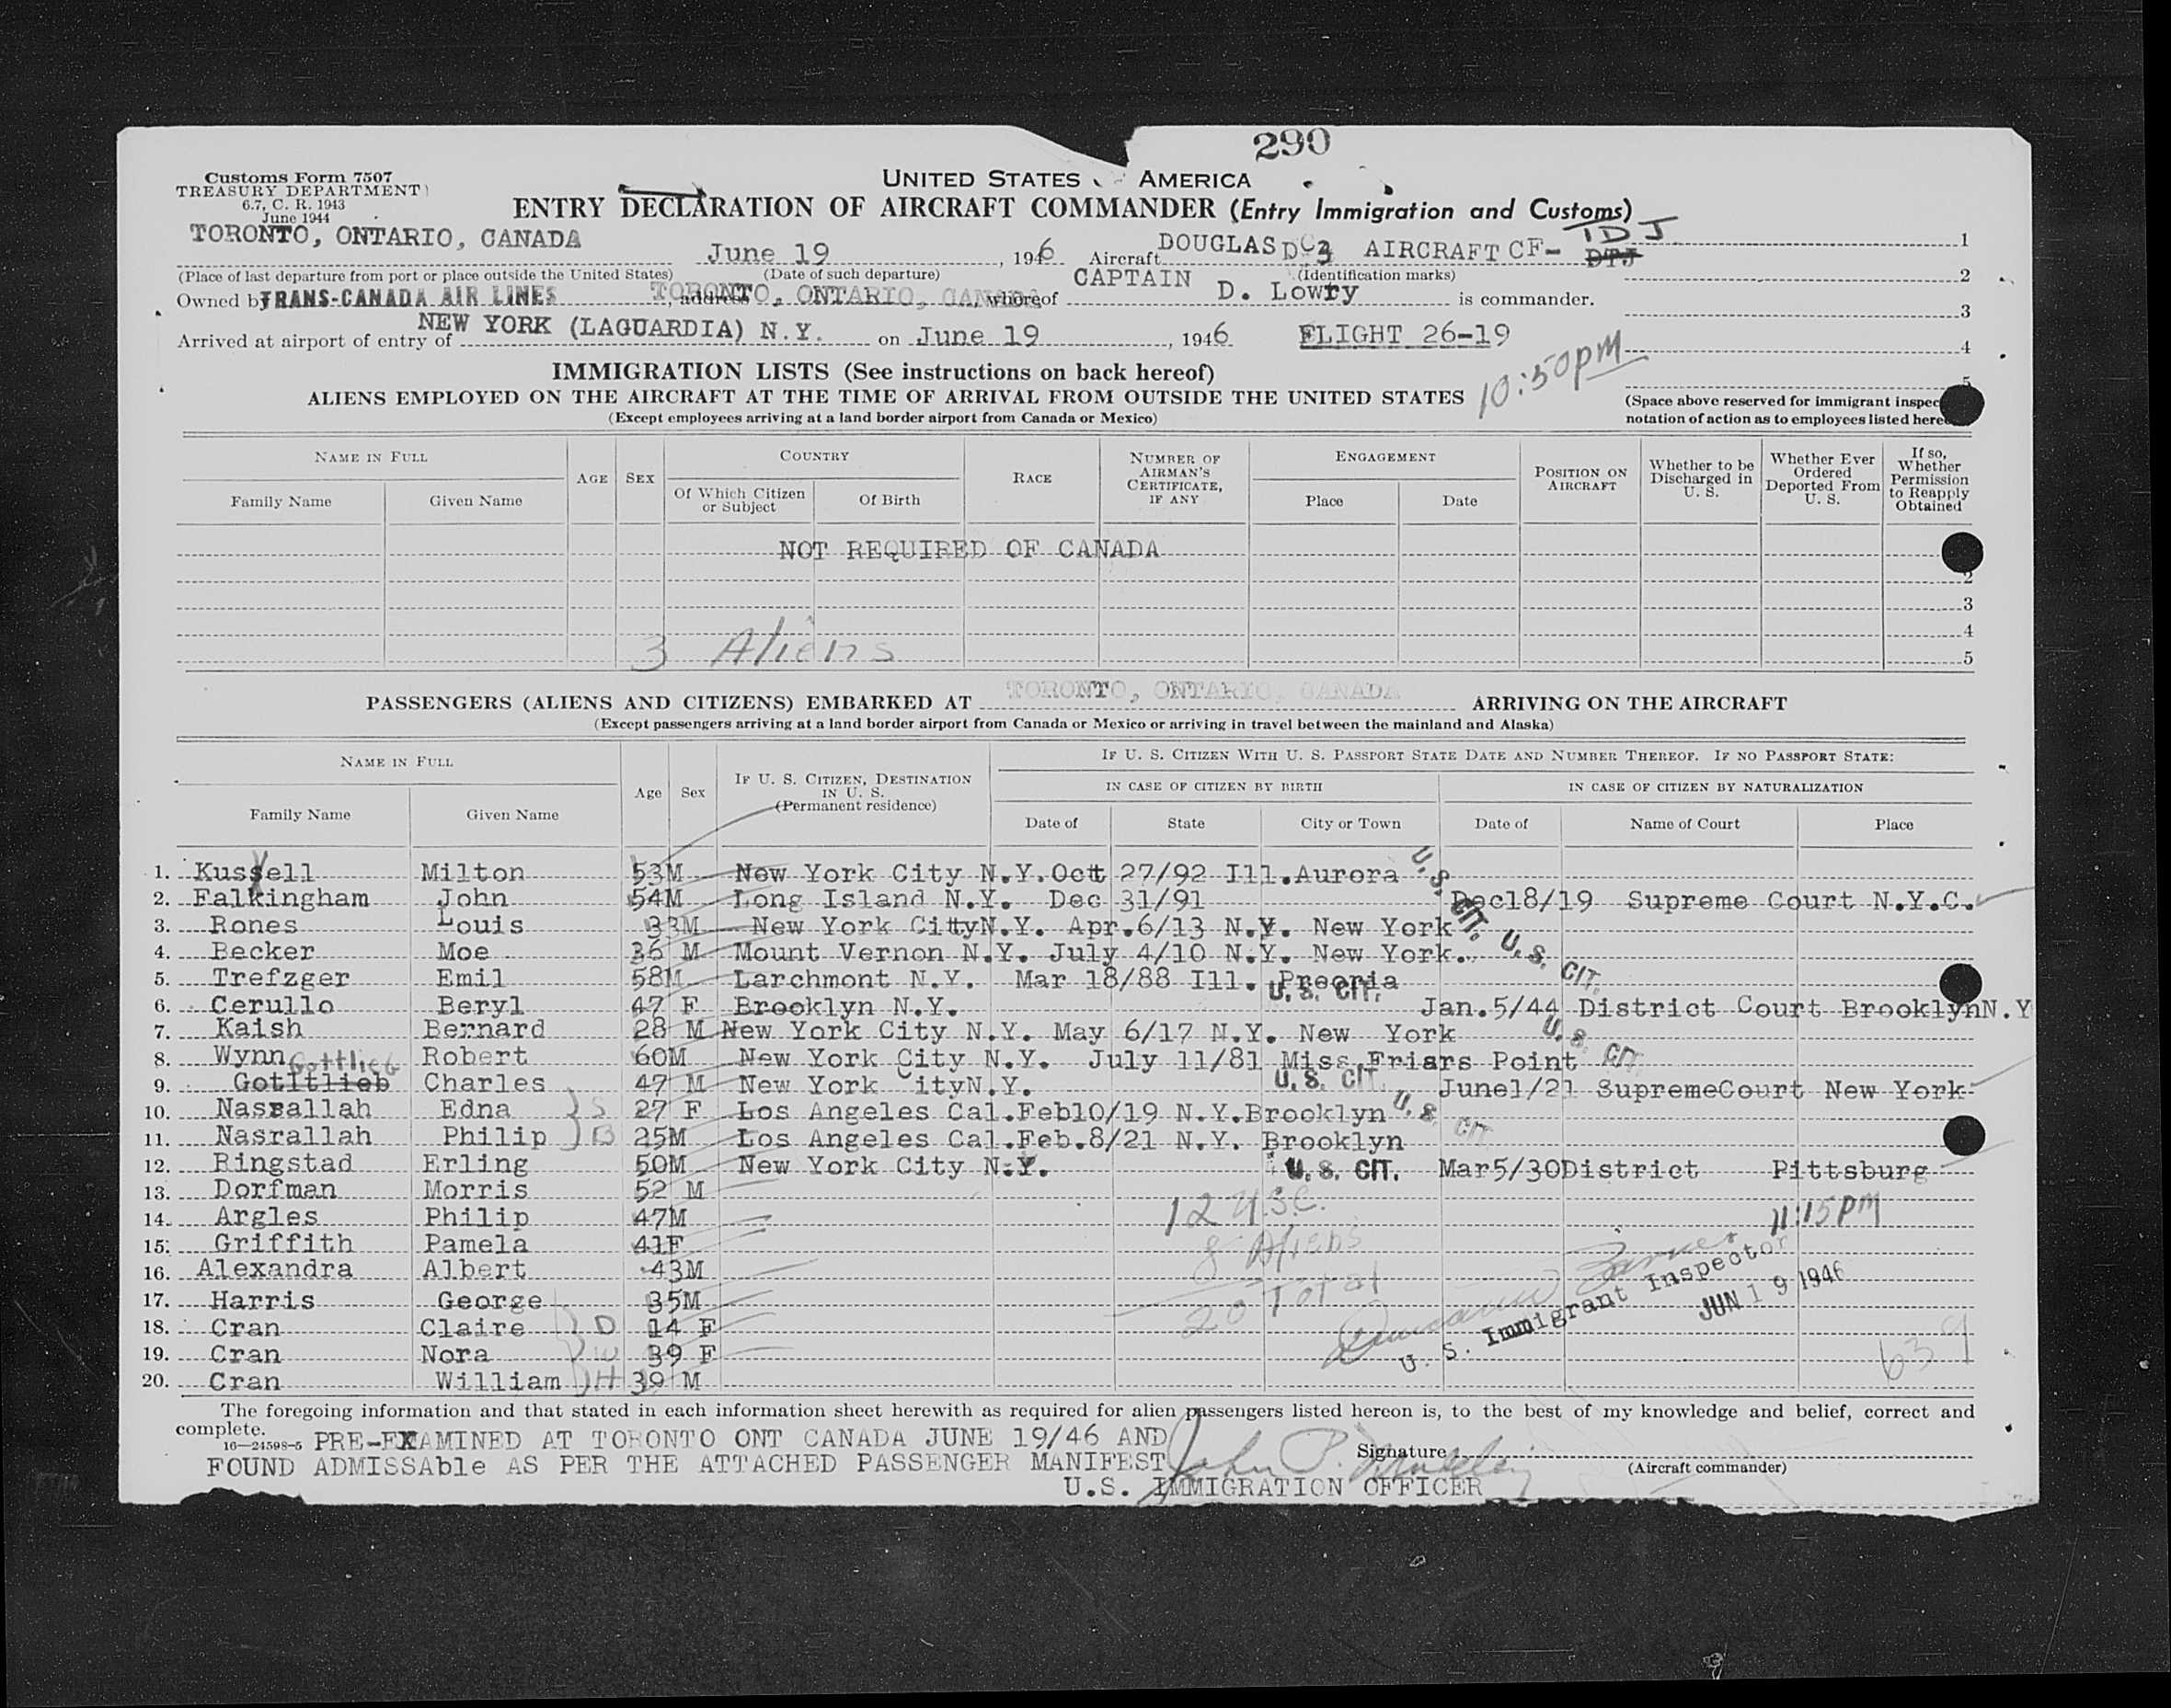 290
Customs Form 7507
TREASURY DEPARTMENT
6.7, C. R. 1943
June 1944
UNITED STATES AMERICA
ENTRY DECLARATION OF AIRCRAFT COMMANDER (Entry Immigration and Customs)
TORONTO, ONTARIO, CANADA June 19, 1946 Aircraft DOUGLAS DC3 AIRCRAFT CF- DTJ TDJ 1
(Place of last departure from port or place outside the United States) (Date of such departure) (Identification marks)
2
Owned by TRANS-CANADA AIR LINES, address TORONTO, ONTARIO, CANADA, whereof CAPTAIN D. Lowry is commander.
3
Arrived at airport of entry of NEW YORK (LAGUARDIA) N.Y. on June 19, 1946 FLIGHT 26-19
4
10:50pm
5
IMMIGRATION LISTS (See instructions on back hereof)
ALIENS EMPLOYED ON THE AIRCRAFT AT THE TIME OF ARRIVAL FROM OUTSIDE THE UNITED STATES
(Except employees arriving at a land border airport from Canada or Mexico)
(Space above reserved for immigrant inspec
notation of action as to employees listed here
NAME IN FULL
Family Name Given Name
AGE SEX
COUNTRY
Of Which Citizen or Subject Of Birth
RACE
NUMBER OF AIRMAN'S CERTIFICATE, IF ANY
ENGAGEMENT
Place Date
POSITION ON AIRCRAFT
Whether to be Discharged in U. S.
Whether Ever Ordered Deported From U. S.
If so, Whether Permission to Reapply Obtained
NOT REQUIRED OF CANADA
2
3
4
3 Aliens 5
PASSENGERS (ALIENS AND CITIZENS) EMBARKED AT TORONTO, ONTARIO, CANADA ARRIVING ON THE AIRCRAFT
(Except passengers arriving at a land border airport from Canada or Mexico or arriving in travel between the mainland and Alaska)
NAME IN FULL
Family Name Given Name
Age Sex
IF U. S. CITIZEN, DESTINATION IN U. S.
(Permanent residence)
IF U. S. CITIZEN WITH U. S. PASSPORT STATE DATE AND NUMBER THEREOF. IF NO PASSPORT STATE:
IN CASE OF CITIZEN BY BIRTH IN CASE OF CITIZEN BY NATURALIZATION
Date of State City or Town Date of Name of Court Place
1. Kussell Milton 53M New York City N.Y. Oct 27/92 Ill. Aurora U. S. CIT.
2. Falkingham John 54M Long Island N.Y. Dec 31/91 Dec18/19 Supreme Court N.Y.C.
3. Rones Louis 33M New York CittyN.Y. Apr.6/13 N.Y. New York
4. Becker Moe 36 M Mount Vernon N.Y. July 4/10 N.Y. New York. U. S. CIT.
5. Trefzger Emil 58M Larchmont N.Y. Mar 18/88 Ill. Preoria
6. Cerullo Beryl 47 F Brooklyn N.Y. U. S. CIT. Jan.5/44 District Court BrooklynN.Y
7. Kaish Bernard 28 M New York City N.Y. May 6/17 N.Y. New York U. S. CIT.
8. Wynn Robert 60M New York City N.Y. July 11/81 Miss Friars Point
Gottlieb
9. Gotltlieb Charles 47 M New York CityN.Y. U. S. CIT. June1/21 SupremeCourt New York
10. Nasrallah Edna } S 27 F Los Angeles Cal.Feb10/19 N.Y.Brooklyn U. S. CIT
11. Nasrallah Philip } B 25M Los Angeles Cal.Feb.8/21 N.Y. Brooklyn
12. Ringstad Erling 50M New York City N.Y. U. S. CIT. Mar5/30District Pittsburg
13. Dorfman Morris 52 M
14. Argles Philip 47M 12 U.S.C. 11:15 pm
15. Griffith Pamela 41F 8 Aliens
16. Alexandra Albert 43M
17. Harris George 35M 20 Total
U. S. Immigrant Inspector
JUN 19 1946
18. Cran Claire } D 14 F
19. Cran Nora } W 39 F
639
20. Cran William } H 39 M
The foregoing information and that stated in each information sheet herewith as required for alien passengers listed hereon is, to the best of my knowledge and belief, correct and
complete.
16—24598-5 PRE-EXAMINED AT TORONTO ONT CANADA JUNE 19/46 AND
FOUND ADMISSAble AS PER THE ATTACHED PASSENGER MANIFEST
Signature
(Aircraft commander)
U.S. IMMIGRATION OFFICER